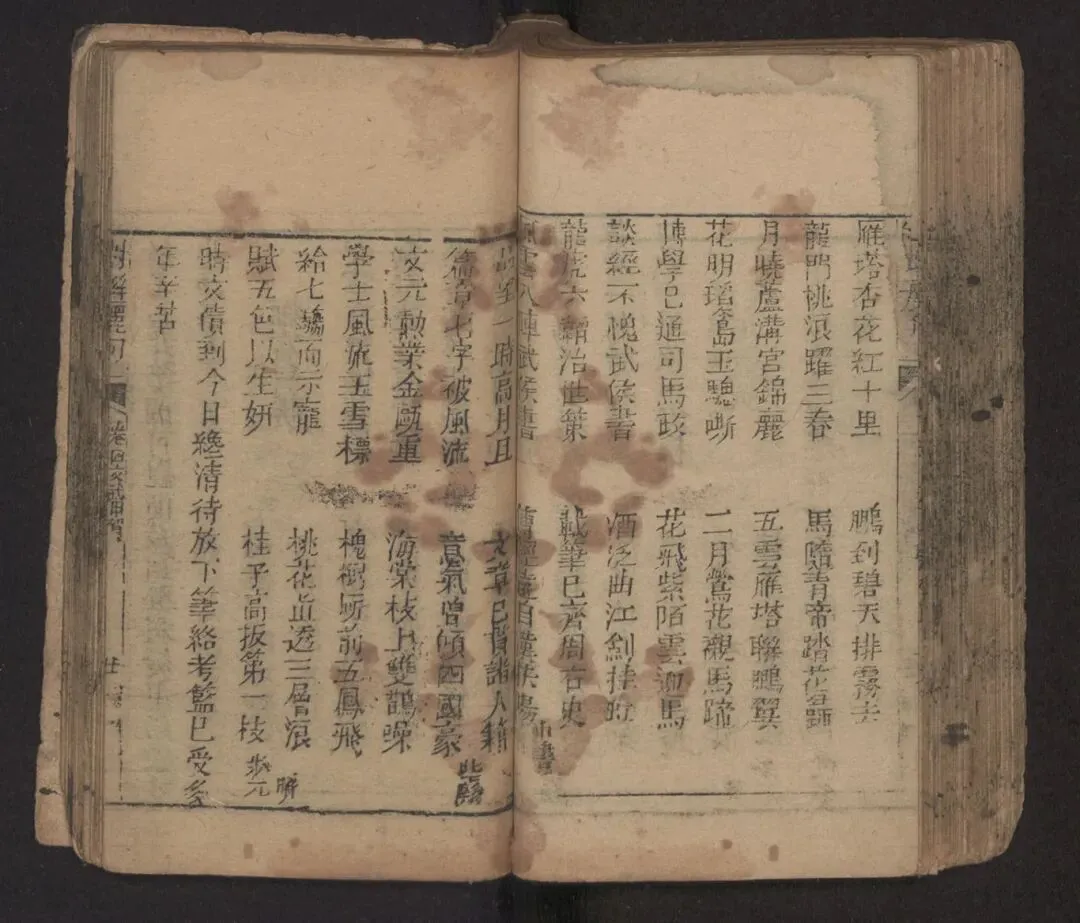 雁塔杏花紅十里 鵬到碧天排霧去
龍門桃浪躍三春 馬隨青帝踏花歸
月曉蘆溝宮錦麗 五雲雁塔聯鵬翼
花明瑤島玉驄嘶 二月鶯花襯馬蹄
博學已通司馬政 花飛紫陌雲迎馬
談經不愧武侯書 酒泛曲江劍挂
龍 六韜治世策 載筆已齊周右史
八陣武侯書
一時高月旦 文章已貴諸人籍
篇章七字破風流 意氣曾傾四國豪
文元勳業金甌重 海棠枝上雙鵲噪
學士風流玉雪標 槐樹㪽前五鳳飛
給七 而示寵 桃花直透三層浪
賦五色以生妍 桂子高扳第一枝
時文債到今日纔清待放下筆絡考籃已受多
年辛苦
卷四